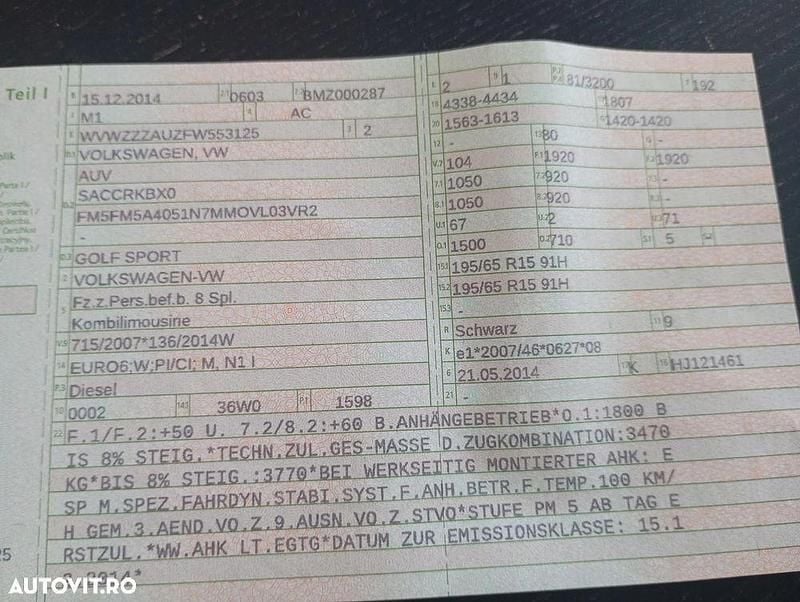 Teil I
B 15.12.2014 2.1 0603 2.2 BMZ000287
J M1 4 AC
E WVWZZZAUZFW553125 3 2
D.1 VOLKSWAGEN, VW
AUV
D.2 SACCRKBX0
FM5FM5A4051N7MMOVL03VR2
-
D.3 GOLF SPORT
2 VOLKSWAGEN-VW
5 Fz.z.Pers.bef.b. 8 Spl.
Kombilimousine
V.9 715/2007*136/2014W
14 EURO6;W;PI/CI; M, N1 I
P.3 Diesel
10 0002 14.1 36W0 P.1 1598
L 2 9 1 P.2 P.4 81/3200 T 192
18 4338-4434 19 1807
20 1563-1613 G 1420-1420
12 - 13 80 Q -
V.7 104 F.1 1920 F.2 1920
7.1 1050 7.2 920 7.3 -
8.1 1050 8.2 920 8.3 -
U.1 67 U.2 2 U.3 71
O.1 1500 O.2 710 S.1 5 S.2
15.1 195/65 R15 91H
15.2 195/65 R15 91H
15.3 -
R Schwarz 11 9
K e1*2007/46*0627*08
6 21.05.2014 17 K 16 HJ121461
21 -
22 F.1/F.2:+50 U. 7.2/8.2:+60 B.ANHÄNGEBETRIEB*O.1:1800 B
IS 8% STEIG.*TECHN.ZUL.GES-MASSE D.ZUGKOMBINATION:3470
KG*BIS 8% STEIG.:3770*BEI WERKSEITIG MONTIERTER AHK: E
SP M.SPEZ.FAHRDYN.STABI.SYST.F.ANH.BETR.F.TEMP.100 KM/
H GEM.3.AEND.VO.Z.9.AUSN.VO.Z.STVO*STUFE PM 5 AB TAG E
RSTZUL.*WW.AHK LT.EGTG*DATUM ZUR EMISSIONSKLASSE: 15.1
2.2014*
AUTOVIT.RO